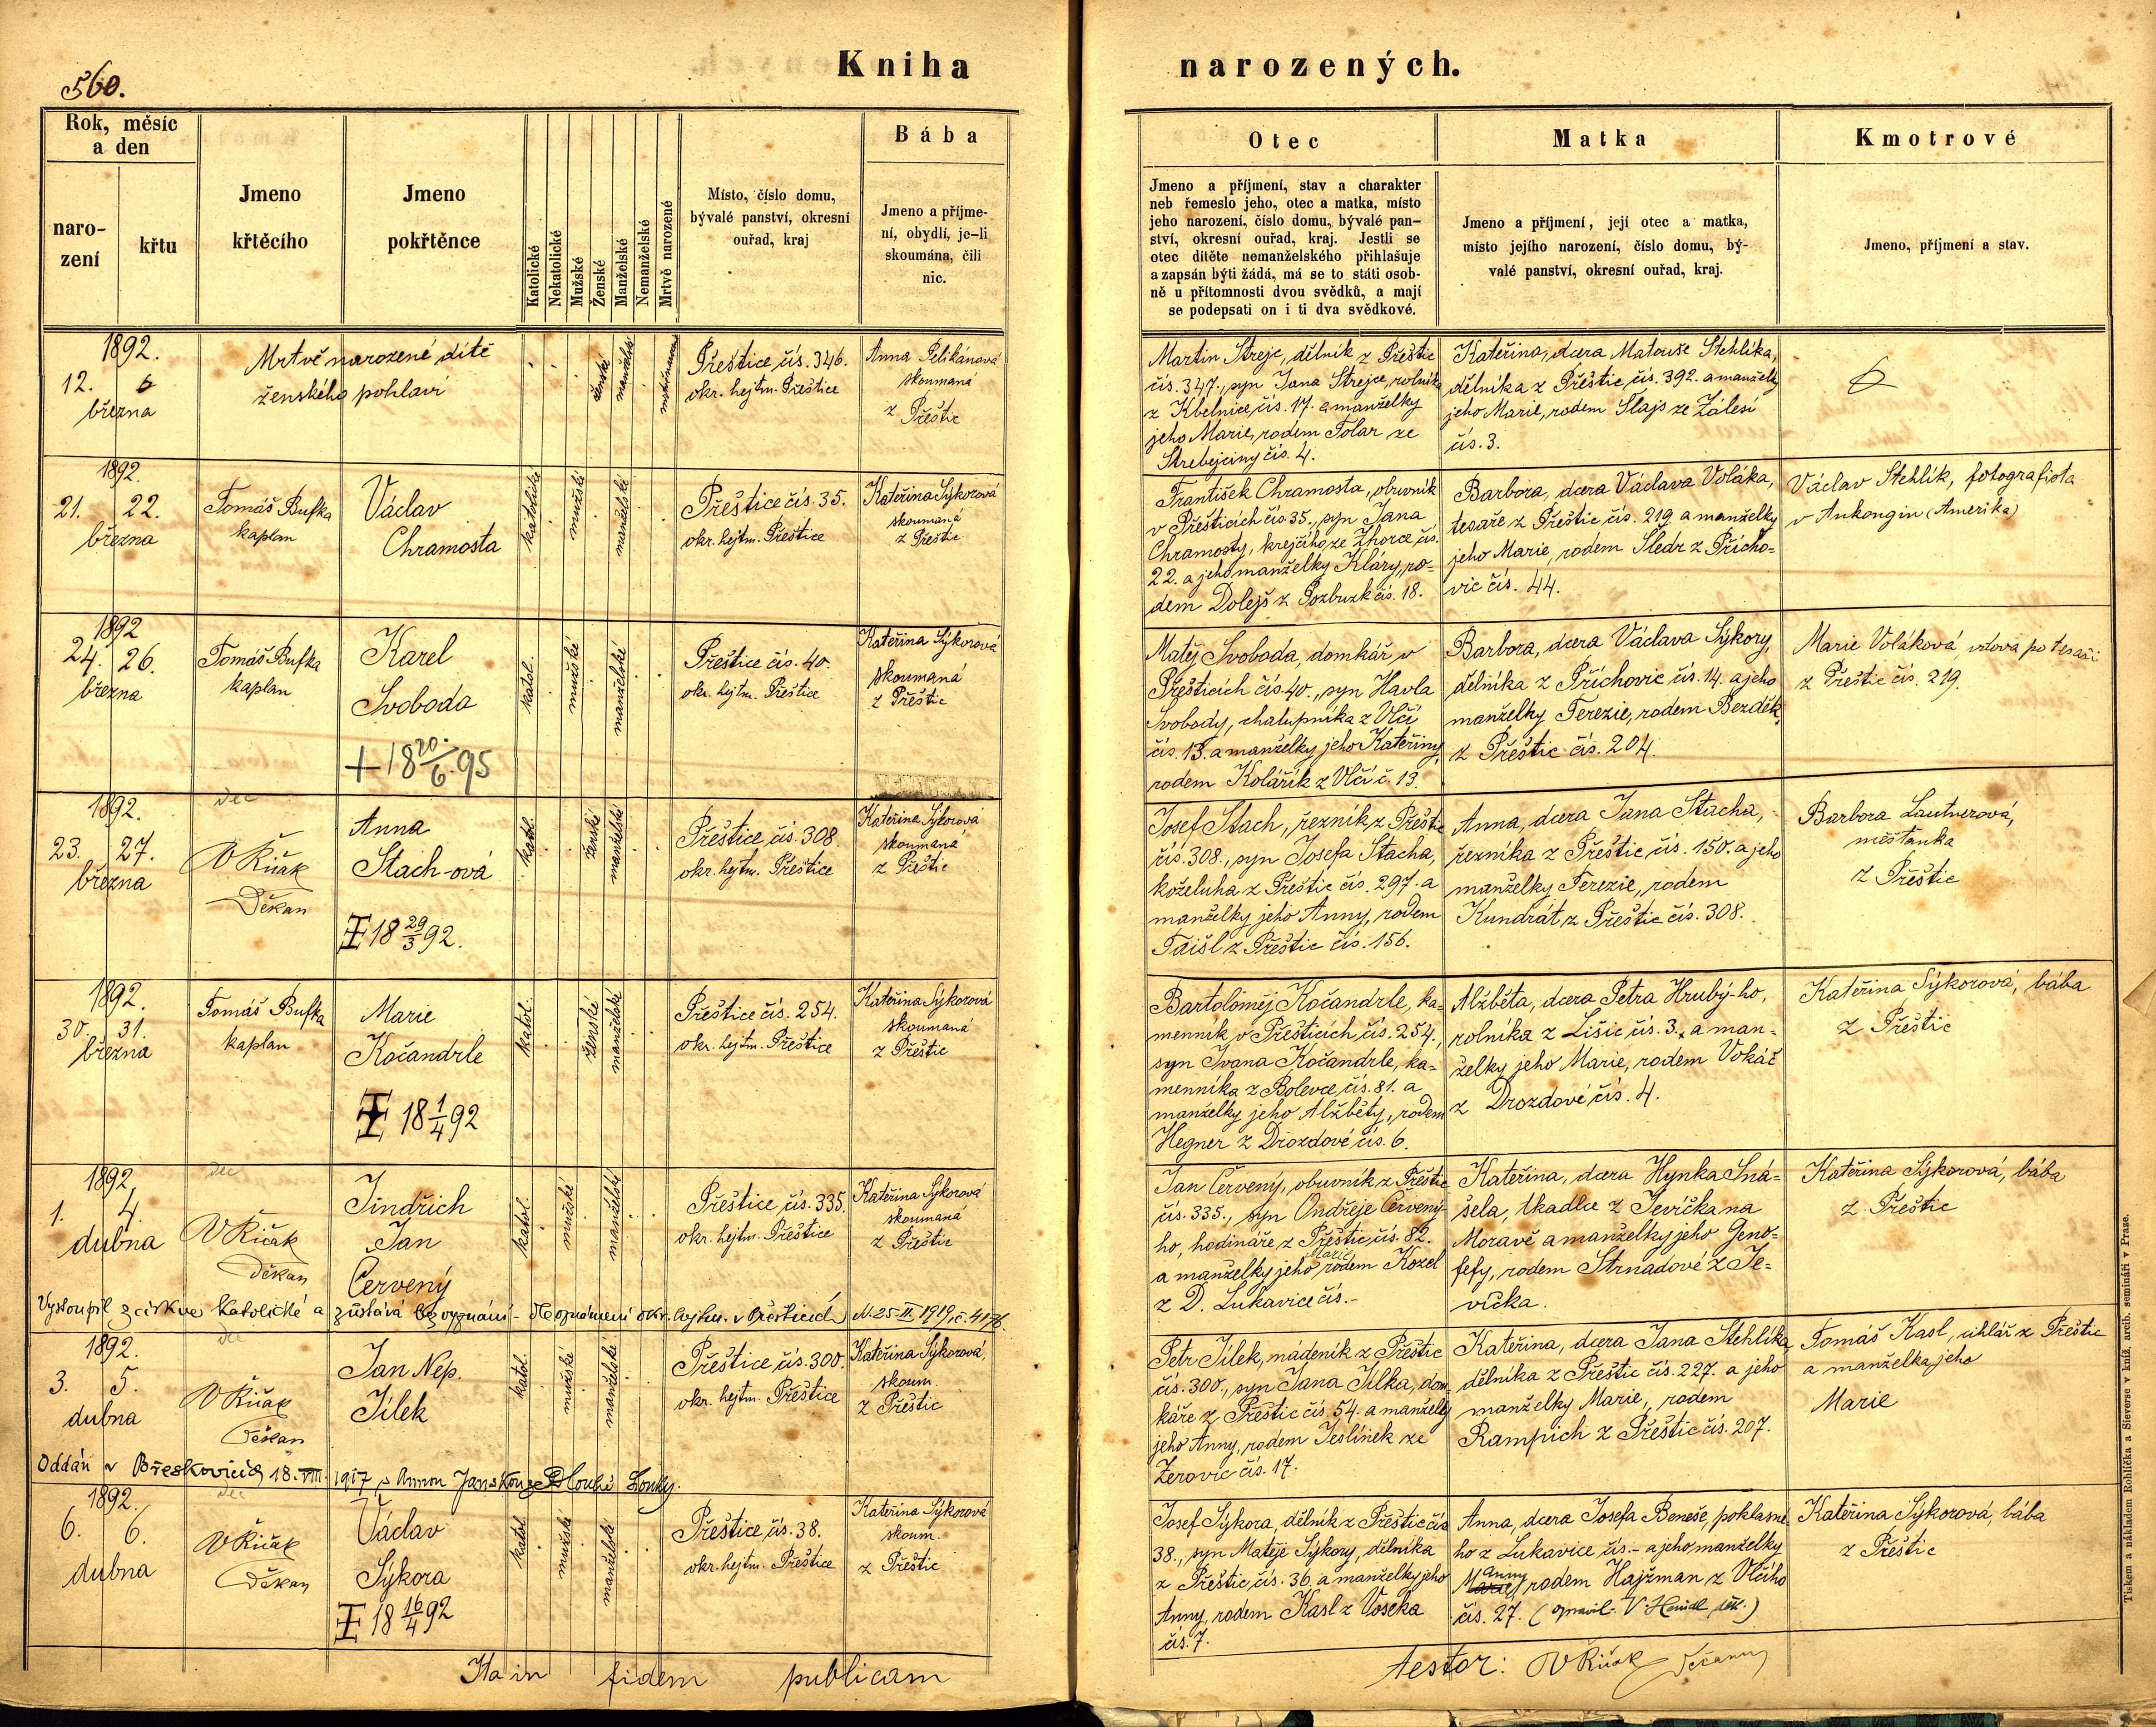 560.
Kniha narozených.
Rok, měsíc
a den
naro-
zení
křtu
Jmeno
křtěcího
Jmeno
pokřtěnce
Katolické
Nekatolické
Mužské
Ženské
Manželské
Nemanželské
Mrtvě narozené
Místo, číslo domu,
bývalé panství, okresní
ouřad, kraj
Bába
Jmeno a příjme-
ní, obydlí, je-li
skoumána, čili
nic.
Otec
Jmeno a příjmení, stav a charakter
neb řemeslo jeho, otec a matka, místo
jeho narození, číslo domu, bývalé pan-
ství, okresní ouřad, kraj. Jestli se
otec dítěte nemanželského přihlašuje
a zapsán býti žádá, má se to státi osob-
ně u přítomnosti dvou svědků, a mají
se podepsati on i ti dva svědkové.
Matka
Jmeno a příjmení, její otec a matka,
místo jejího narození, číslo domu, bý-
valé panství, okresní ouřad, kraj.
Kmotrové
Jmeno, příjmení a stav.
1892.
12.
března
Mrtvě narozené dítě
ženského pohlaví
ženské
manželské
Přeštice čís. 346.
okr. hejtm. Přeštice
Anna Pelikánová
skoumaná
z Přeštic
Martin Strejc, dělník z Přeštic
čís. 347., syn Jana Strejce, rolníka
z Kbelnice čís. 17. a manželky
jeho Marie, rodem Tolar ze
Strebejčiny čís. 4.
Kateřina, dcera Matouše Stehlíka,
dělníka z Přeštic, čís. 392. a manželky
jeho Marie, rodem Slajs ze Zálesí
čís. 3.
1892.
21. 22.
března
Tomáš Bufka
kaplan
Václav
Chramosta
katolické
mužské
manželské
Přeštice čís. 35.
okr. hejtm. Přeštice
Kateřina Sýkorová
skoumaná
z Přeštic
František Chramosta, obuvník
v Přešticích čís 35., syn Jana
Chramosty, krejčího ze Zhorce čís.
22. a jeho manželky Kláry, ro-
dem Dolejš z Pozbuzk čís. 18.
Barbora, dcera Václava Voláka,
tesaře z Přeštic čís. 219. a manželky
jeho Marie, rodem Šledr z Přícho-
vic čís. 44.
Václav Stehlík, fotografista
v Ankongin (Amerika)
1892
24. 26.
března
Tomáš Bufka
kaplan
Karel
Svoboda
+ 18 20./6. 95
katol.
mužské
manželské
Přeštice čís. 40.
okr. hejtm. Přeštice
Kateřina Sýkorová
skoumaná
z Přeštic
Matěj Svoboda, domkář v
Přešticích čís. 40., syn Havla
Svobody, chalupníka z Vlčí
čís. 13. a manželky jeho Kateřiny,
rodem Kolářík z Vlčí č. 13.
Barbora, dcera Václava Sýkory,
dělníka z Příchovic čís. 14. a jeho
manželky Terezie, rodem Bezděk
z Přeštic čís. 204.
Marie Voláková vdova po tesaři
z Přeštic čís. 219.
1892.
23. 27.
března
Děkan
Anna
Stach-ová
18 29/3 92.
katol.
ženské
manželské
Přeštice, čís. 308.
okr. hejtm. Přeštice
Kateřina Sýkorová
skoumaná
z Přeštic
Josef Stach, řezník z Přeštic
čís. 308., syn Josefa Stacha,
koželuha z Přeštic čís. 297. a
manželky jeho Anny, rodem
Taišl z Přeštic čís. 156.
Anna, dcera Jana Stacha,
řezníka z Přeštic čís. 150. a jeho
manželky Terezie, rodem
Kundrát z Přeštic čís. 308.
Barbora Lautnerová,
měšťanka
z Přeštic
1892.
30. 31.
března
Tomáš Bufka
kaplan
Marie
Kočandrle
18 1/4 92
katol.
ženské
manželské
Přeštice čís. 254.
okr. hejtm. Přeštice
Kateřina Sýkorová
skoumaná
z Přeštic
Bartoloměj Kočandrle, ka-
menník v Přešticích čís. 254.,
syn Ivana Kočandrle, ka-
menníka z Bolevce čís. 81. a
manželky jeho Alžběty, rodem
Hegner z Drozdové čís. 6.
Alžběta, dcera Petra Hrubý-ho,
rolníka z Lišic čís. 3., a man-
želky jeho Marie, rodem Vokáč
z Drozdové čís. 4.
Kateřina Sýkorová, bába
z Přeštic
1892.
1. 4.
dubna
Děkan
Jindřich
Jan
Červený
katol.
mužské
manželský
Přeštice, čís. 335.
okr. hejtm. Přeštice
Kateřina Sýkorová
skoumaná
z Přeštic
Jan Červený, obuvník z Přeštic
čís. 335., syn Ondřeje Červený-
ho, hodináře, z Přeštic, čís. 82.
a manželky jeho Marie rodem Kozel
z D. Lukavice čís. -
Kateřina, dcera Hynka Sná-
šela, tkadlce z Jevíčka na
Moravě a manželky jeho Geno-
fefy, rodem Strnadové z Je-
víčka.
Kateřina Sýkorová, bába
z Přeštic
Vystoupil z církve katolické a zůstává bez vyznání - dle oznámení okr. hejtm. v Přešticích 25 III 1919, č. 4176.
1892.
3. 5.
dubna
Děkan
Jan Nep.
Jílek
katol.
mužské
manželské
Přeštice čís. 300.
okr. hejtm. Přeštice
Kateřina Sýkorová,
skoum.
z Přeštic
Petr Jílek, nádeník z Přeštic
čís. 300., syn Jana Jílka, dom-
káře z Přeštic čís. 54. a manželky
jeho Anny, rodem Jeslínek ze
Žerovic čís. 17.
Kateřina, dcera Jana Stehlíka
dělníka z Přeštic čís. 227. a jeho
manželky Marie, rodem
Rampich z Přeštic čís. 207.
Tomáš Kasl, cihlář z Přeštic
a manželka jeho
Marie
Oddán v Břeskovicích 18. VIII. 1917 s Annou Janskou z Dlouhé Louky.
1892.
6. 6.
dubna
Děkan
Václav
Sýkora
18 16/4 92
katol.
mužské
manželské
Přeštice, čís. 38.
okr. hejtm. Přeštice
Kateřina Sýkorová
skoum.
z Přeštic
Josef Sýkora, dělník z Přeštic čís
38., syn Matěje Sýkory, dělníka
z Přeštic, čís. 36. a manželky jeho
Anny, rodem Kasl z Voseka
čís. 7.
Anna, dcera Josefa Beneše, poklasné-
ho z Lukavice čís. - a jeho manželky
Anny rodem Hajžman z Vlčího
čís. 27.
Kateřina Sýkorová, bába
z Přeštic
Ita in fidem publicam testor:
Tiskem a nákladem Rohlíčka a Sieverse v kníž. arcib. semináři v Praze.